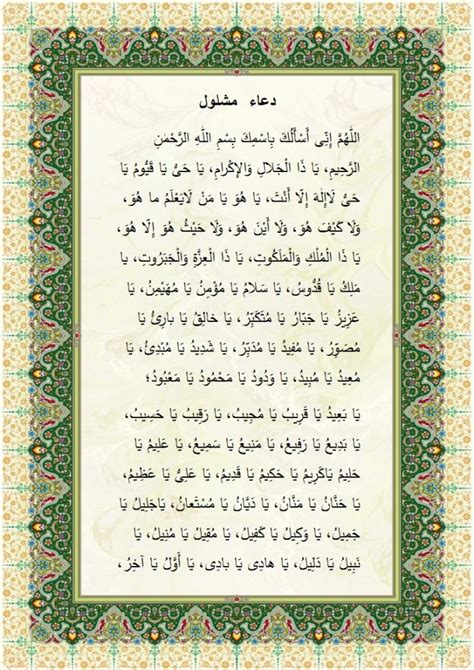 دعاء مشلول
اَللّٰهُمَّ اِنِّى أَسْأَلُكَ بِاسْمِكَ بِسْمِ اللهِ الرَّحْمٰنِ
الرَّحِيمِ، يَا ذَا الْجَلالِ وَالإكْرامِ، يَا حَىُّ يَا قَيُّومُ يَا
حَىُّ لَاإِلهَ إِلَّا أَنْتَ، يَا هُوَ يَا مَنْ لَايَعْلَمُ ما هُوَ،
وَلَا كَيْفَ هُوَ، وَلَا أَيْنَ هُوَ، وَلَا حَيْثُ هُوَ إِلّا هُوَ،
يَا ذَا الْمُلْكِ وَالْمَلَكُوتِ، يَا ذَا الْعِزَّةِ وَالْجَبَرُوتِ، يا
مَلِكُ يَا قُدُّوسُ، يَا سَلامُ يَا مُؤْمِنُ يَا مُهَيْمِنُ، يَا
عَزِيزُ يَا جَبّارُ يَا مُتَكَبِّرُ، يَا خالِقُ يَا بارِئُ يَا
مُصَوِّرُ، يَا مُفِيدُ يَا مُدَبِّرُ، يَا شَدِيدُ يَا مُبْدِئُ، يَا
مُعِيدُ يَا مُبِيدُ، يَا وَدُودُ يَا مَحْمُودُ يَا مَعْبُودُ؛
يَا بَعِيدُ يَا قَرِيبُ يَا مُجِيبُ، يَا رَقِيبُ يَا حَسِيبُ،
يَا بَدِيعُ يَا رَفِيعُ، يَا مَنِيعُ يَا سَمِيعُ، يَا عَلِيمُ يَا
حَلِيمُ يَاكَرِيمُ يَا حَكِيمُ يَا قَدِيمُ، يَا عَلِىُّ يَا عَظِيمُ،
يَا حَنّانُ يَا مَنّانُ، يَا دَيّانُ يَا مُسْتَعانُ، يَاجَلِيلُ يَا
جَمِيلُ، يَا وَكِيلُ يَا كَفِيلُ، يَا مُقِيلُ يَا مُنِيلُ، يَا
نَبِيلُ يَا دَلِيلُ، يَا هادِى يَا بادِى، يَا أَوَّلُ يَا آخِرُ،